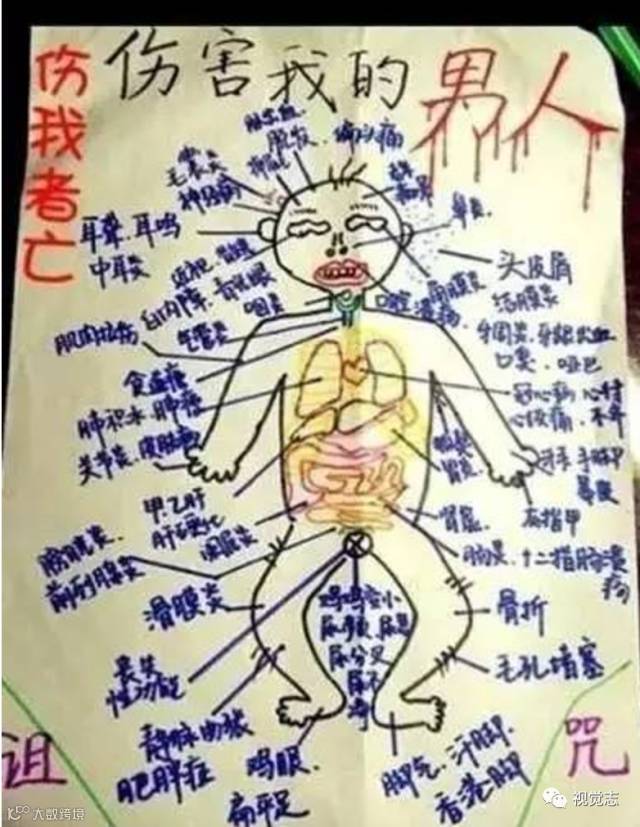 伤害我的男人
伤我者亡
脑出血
脱发、偏头痛
毛囊炎
抑郁
神经病
鼻炎
耳聋、耳鸣
中耳炎
头皮屑
近视
角膜炎
结膜炎
白内障、青光眼
口腔溃疡
咽炎
气管炎
牙周炎、牙龈出血
口臭、哑巴
肌肉拉伤
食道癌
肺积水、肺癌
冠心病、心衬
心绞痛、不齐
关节炎、皮肤病
胃炎
灰指甲
甲、乙肝
肝硬化
阑尾炎
肾虚
肠炎、十二指肠溃疡
膀胱炎
前列腺炎
滑膜炎
鸡鸡变小
尿频、尿急
尿分叉
尿不净
骨折
丧失
性功能
毛孔堵塞
静脉曲张
肥胖症
鸡眼、
扁平足
脚气、汗脚、
香港脚
诅
咒
大数跨境
视觉志